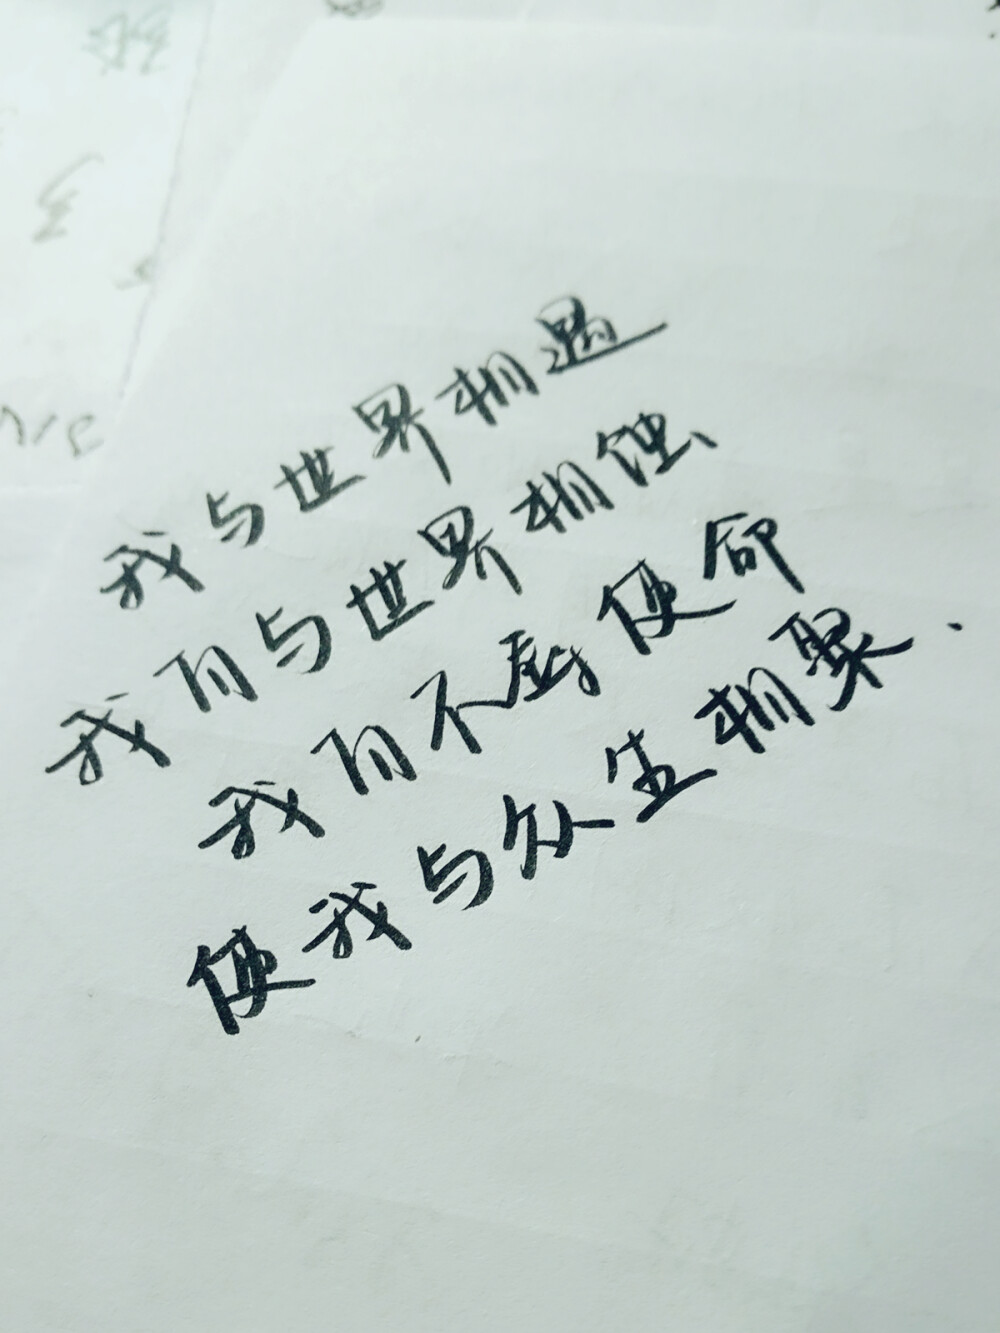 我与世界相遇
我自与世界相蚀
我自不辱使命
使我与众生相聚.